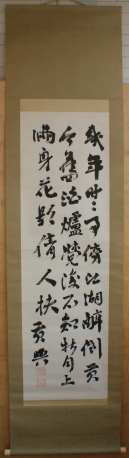 幾年無事傍江湖醉倒黃
公舊酒爐覺後不知明月上
滿身花影倩人扶 黃興